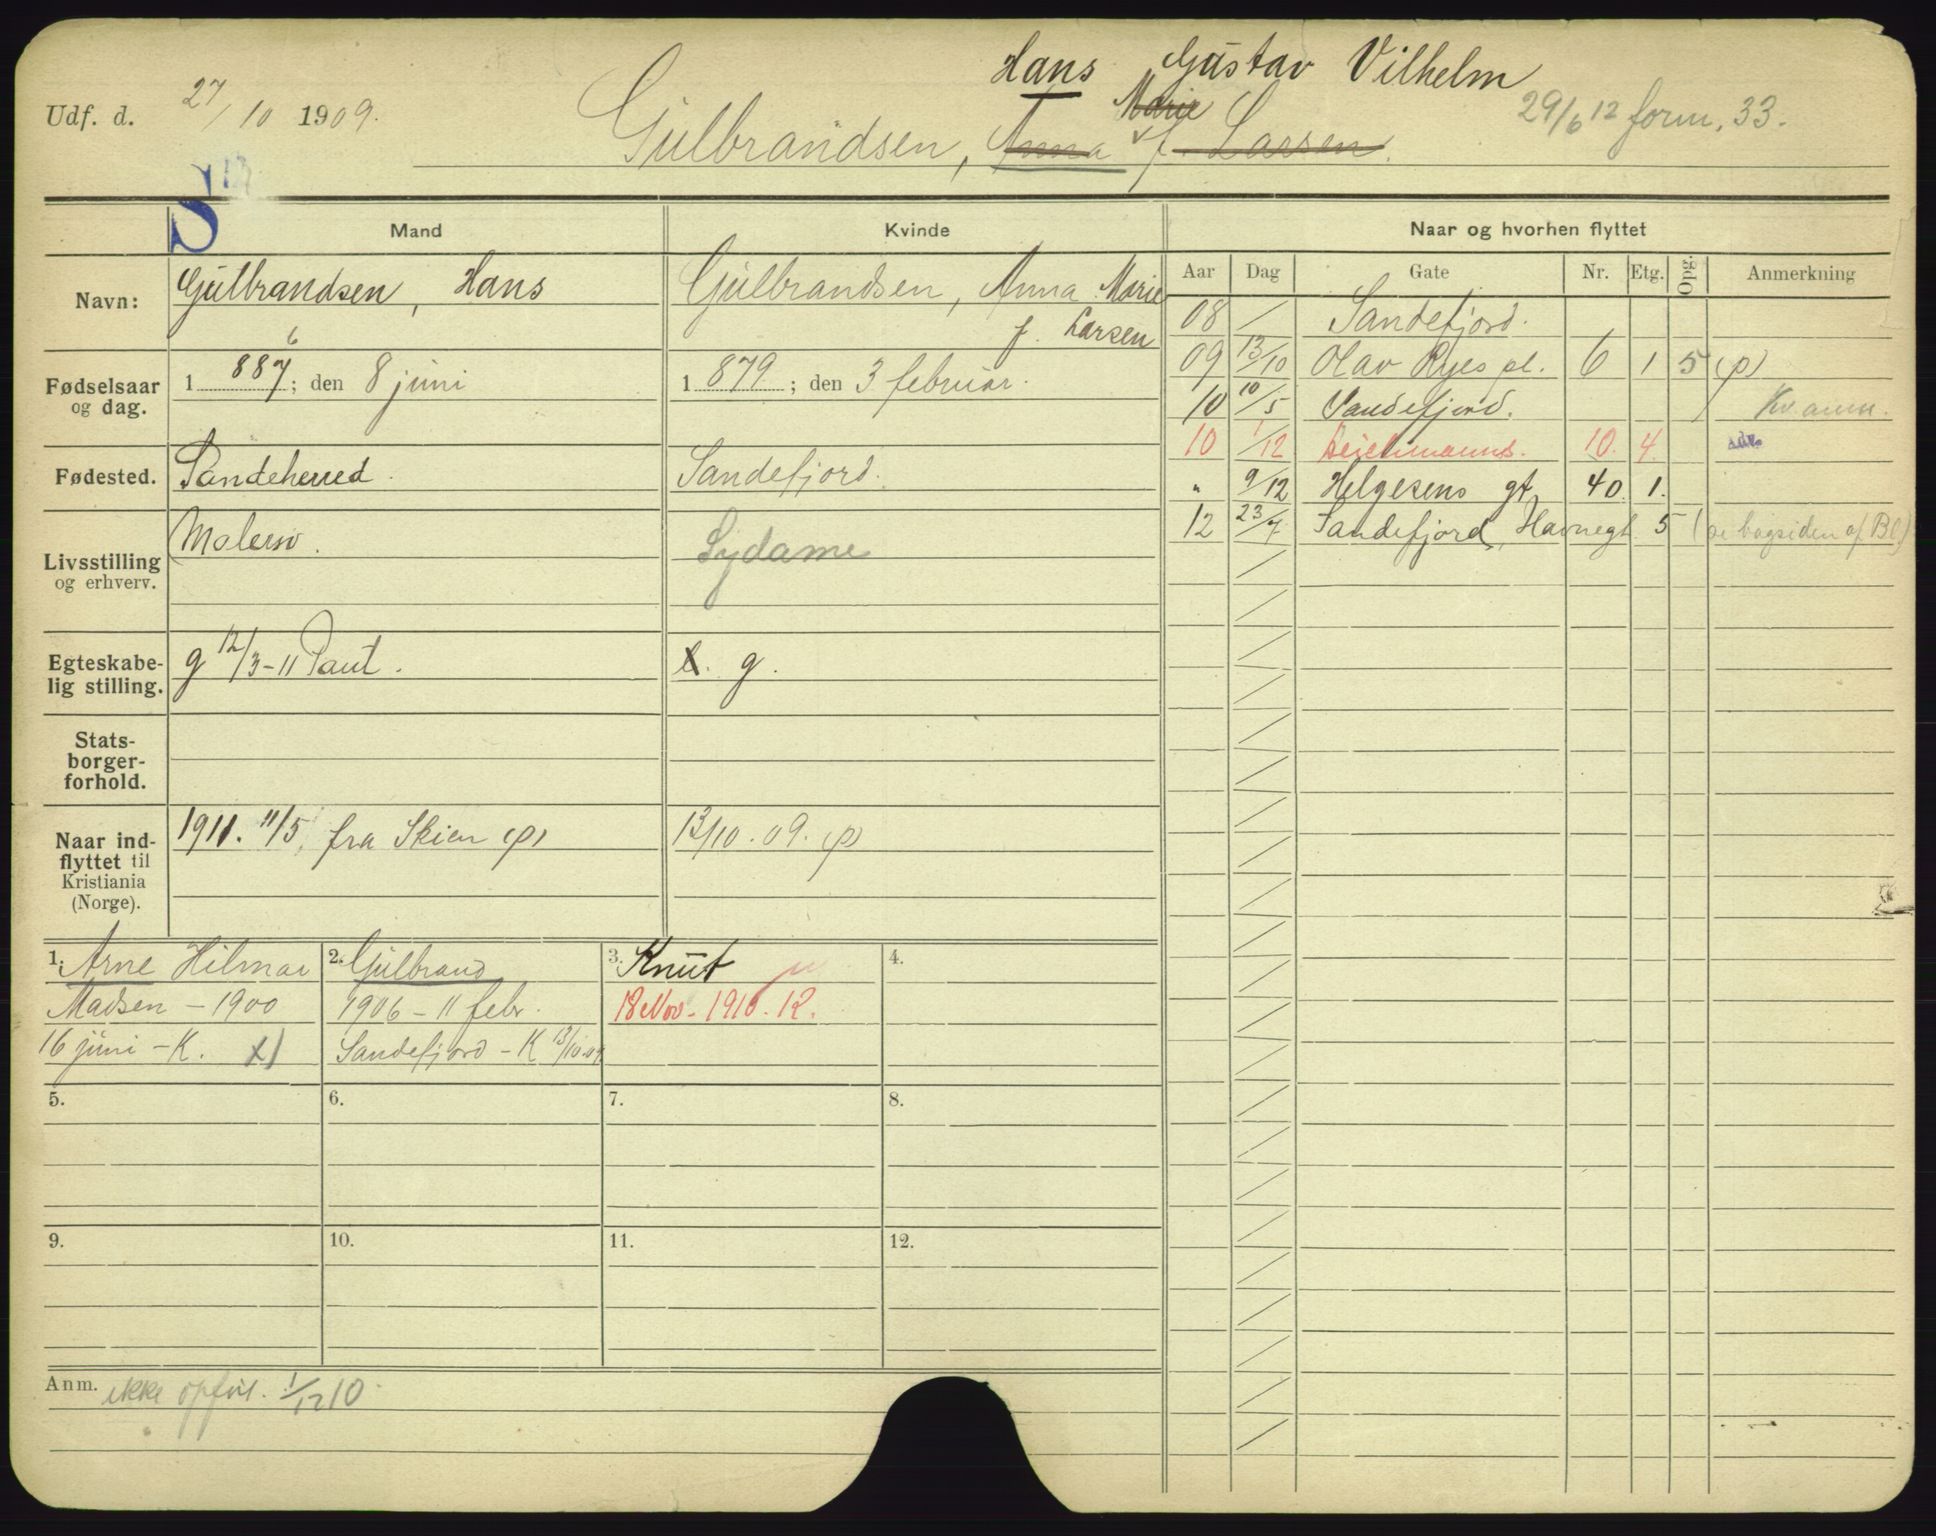 Hans Gustav Vilhelm
Udf. d. 27/10 1909.
Gulbrandsen, Anna Marie f. Larsen.
29/6 12 form. 33.
S
Mand
Kvinde
Naar og hvorhen flyttet
Navn:
Gulbrandsen, Hans
Gulbrandsen, Anna Marie
f. Larsen
Fødselsaar
og dag.
1 887; den 8 juni
6
1 879; den 3 februar.
Fødested.
Sandeherred.
Sandefjord.
Livsstilling
og erhverv.
Malersv.
Sydame
Egteskabe-
lig stilling.
g 12/3-11 Paut.
g.
Stats-
borger-
forhold.
Naar ind-
flyttet til
Kristiania
(Norge).
1911. 11/5, fra Skien (p)
13/10. 09. (p)
1. Arne Hilmar
Madsen - 1900
16 juni - K. x)
2. Gulbrand
1906 - 11 febr.
Sandefjord - K 13/10.09.
3. Knut
18 Nov. - 1910. 12.
4.
5.
6.
7.
8.
9.
10.
11.
12.
Anm. ikke opfør. 1/12 10.
Aar Dag Gate Nr. Etg. Opg. Anmerkning
08 / Sandefjord.
09 13/10 Olav Ryes pl. 6 1 5 (p)
10 10/5 Sandefjord. Kv. anm.
10 1/12 Deichmanns. 10. 4. adr.
" 9/12 Helgesens gt. 40. 1.
12 23/7 Sandefjord, Havnegt. 5 (se bagsiden af Bl.)